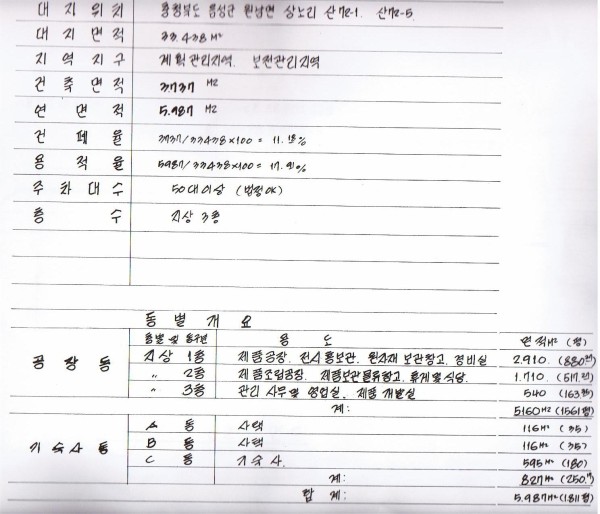 대지위치 충청북도 음성군 원남면 상노리 산72-1. 산72-5
대지면적 33.438 M²
지역지구 계획관리지역. 보전관리지역
건축면적 3737 M2
연면적 5.987 M2
건폐율 3737/33438×100 = 11.18%
용적율 5987/33438×100 = 17.90%
주차대수 50대이상 (법정OK)
층수 지상 3층
동별개요
층별 및 동구분 용도 면적M² (평)
공장동 지상 1층 제품공장. 전시홍보관. 원자재 보관창고. 경비실 2.910. (880평)
〃 2층 제품조립공장. 제품보관물류창고. 휴게및식당. 1.710. (517평)
〃 3층 관리 사무및 영업실. 제품 개발실 540 (163평)
계: 5160M2 (1561평)
기숙사동 A 동 사택 116M² (35)
B 동 사택 116M² (35)
C 동 기숙사. 595M² (180)
계: 827M² (250평)
합계: 5.987M² (1.811평)